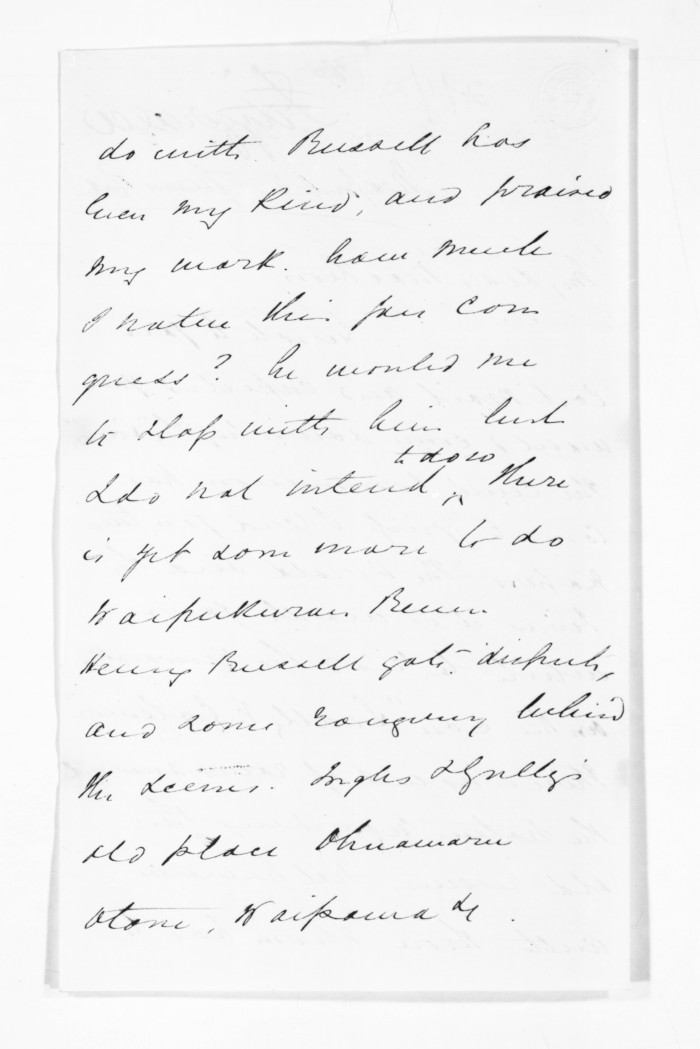 do with. Russell has
been my kind, and praised
my work. how much
I value this you can
guess? he wanted me
to stop with him but
I do not intend to do so, there
is yet some more to do
Waipukurau
Henry Russell gate dispute,
and some roguery behind
the scenes. Inglis &
old place
Otane, Waipawa &c.